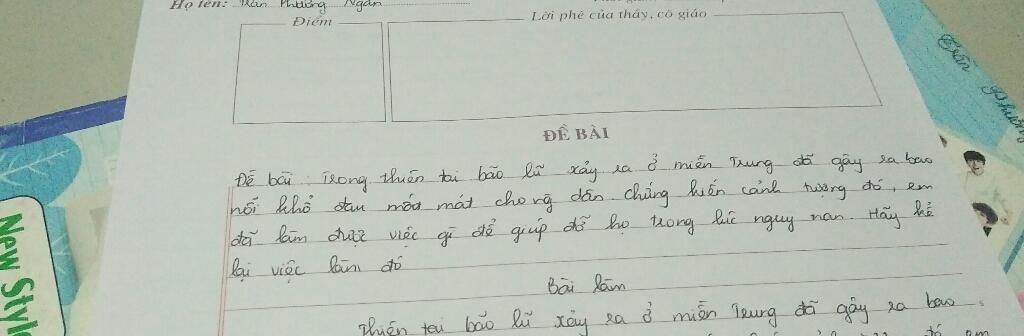 Họ tên: Trần Phương Ngân
Điểm
Lời phê của thầy, cô giáo
Trần Phương
ĐỀ BÀI
Đề bài: Trong thiên tai bão lũ xảy ra ở miền Trung đã gây ra bao
nỗi khổ đau mất mát cho ng dân. chứng kiến cảnh tượng đó, em
đã làm được việc gì để giúp đỡ họ trong lúc nguy nan. Hãy kể
lại việc làm đó
Bài làm
Thiên tai bão lũ xảy ra ở miền Trung đã gây ra bao
đó, em
New Style